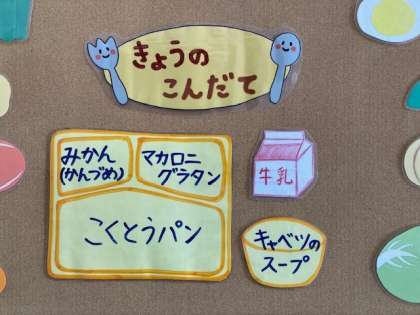 きょうの
こんだて
みかん
(かんづめ)
マカロニ
グラタン
牛乳
こくとうパン
キャベツの
スープ